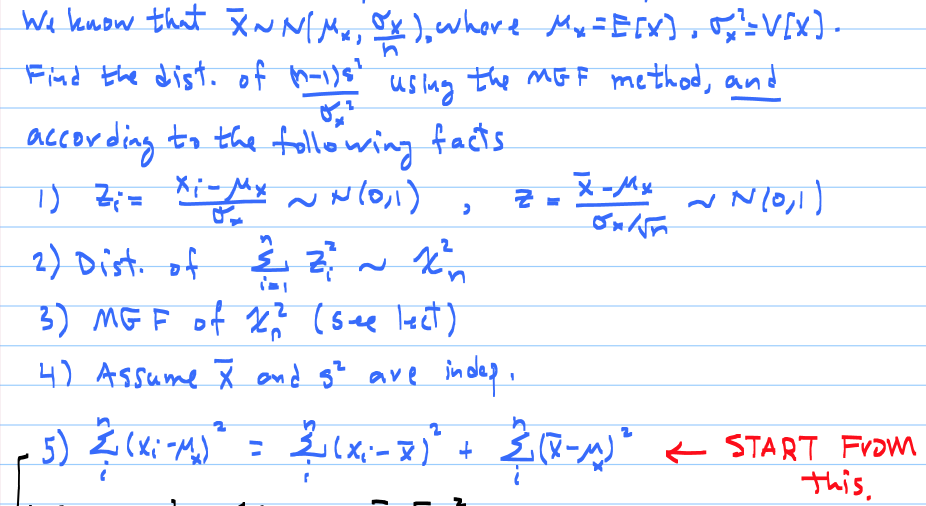 We know that x̄ ~ N(μₓ, σₓ²/n), where μₓ = E[X], σₓ² = V[X].
Find the dist. of (n-1)s²/σₓ² using the MGF method, and
according to the following facts
1) Zᵢ = (xᵢ - μₓ)/σₓ ~ N(0,1) , Z = (x̄ - μₓ)/(σₓ/√n) ~ N(0,1)
2) Dist. of Σᵢ₌₁ⁿ Zᵢ² ~ χ²ₙ
3) MGF of χ²ₙ (see lect)
4) Assume x̄ and s² are indep.
5) Σᵢⁿ (xᵢ - μₓ)² = Σᵢⁿ (xᵢ - x̄)² + Σᵢⁿ (x̄ - μₓ)² ← START FROM
this.